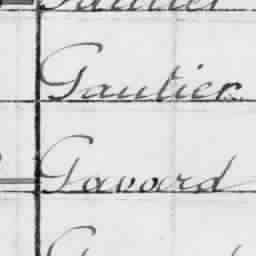 Gautier
Gavard